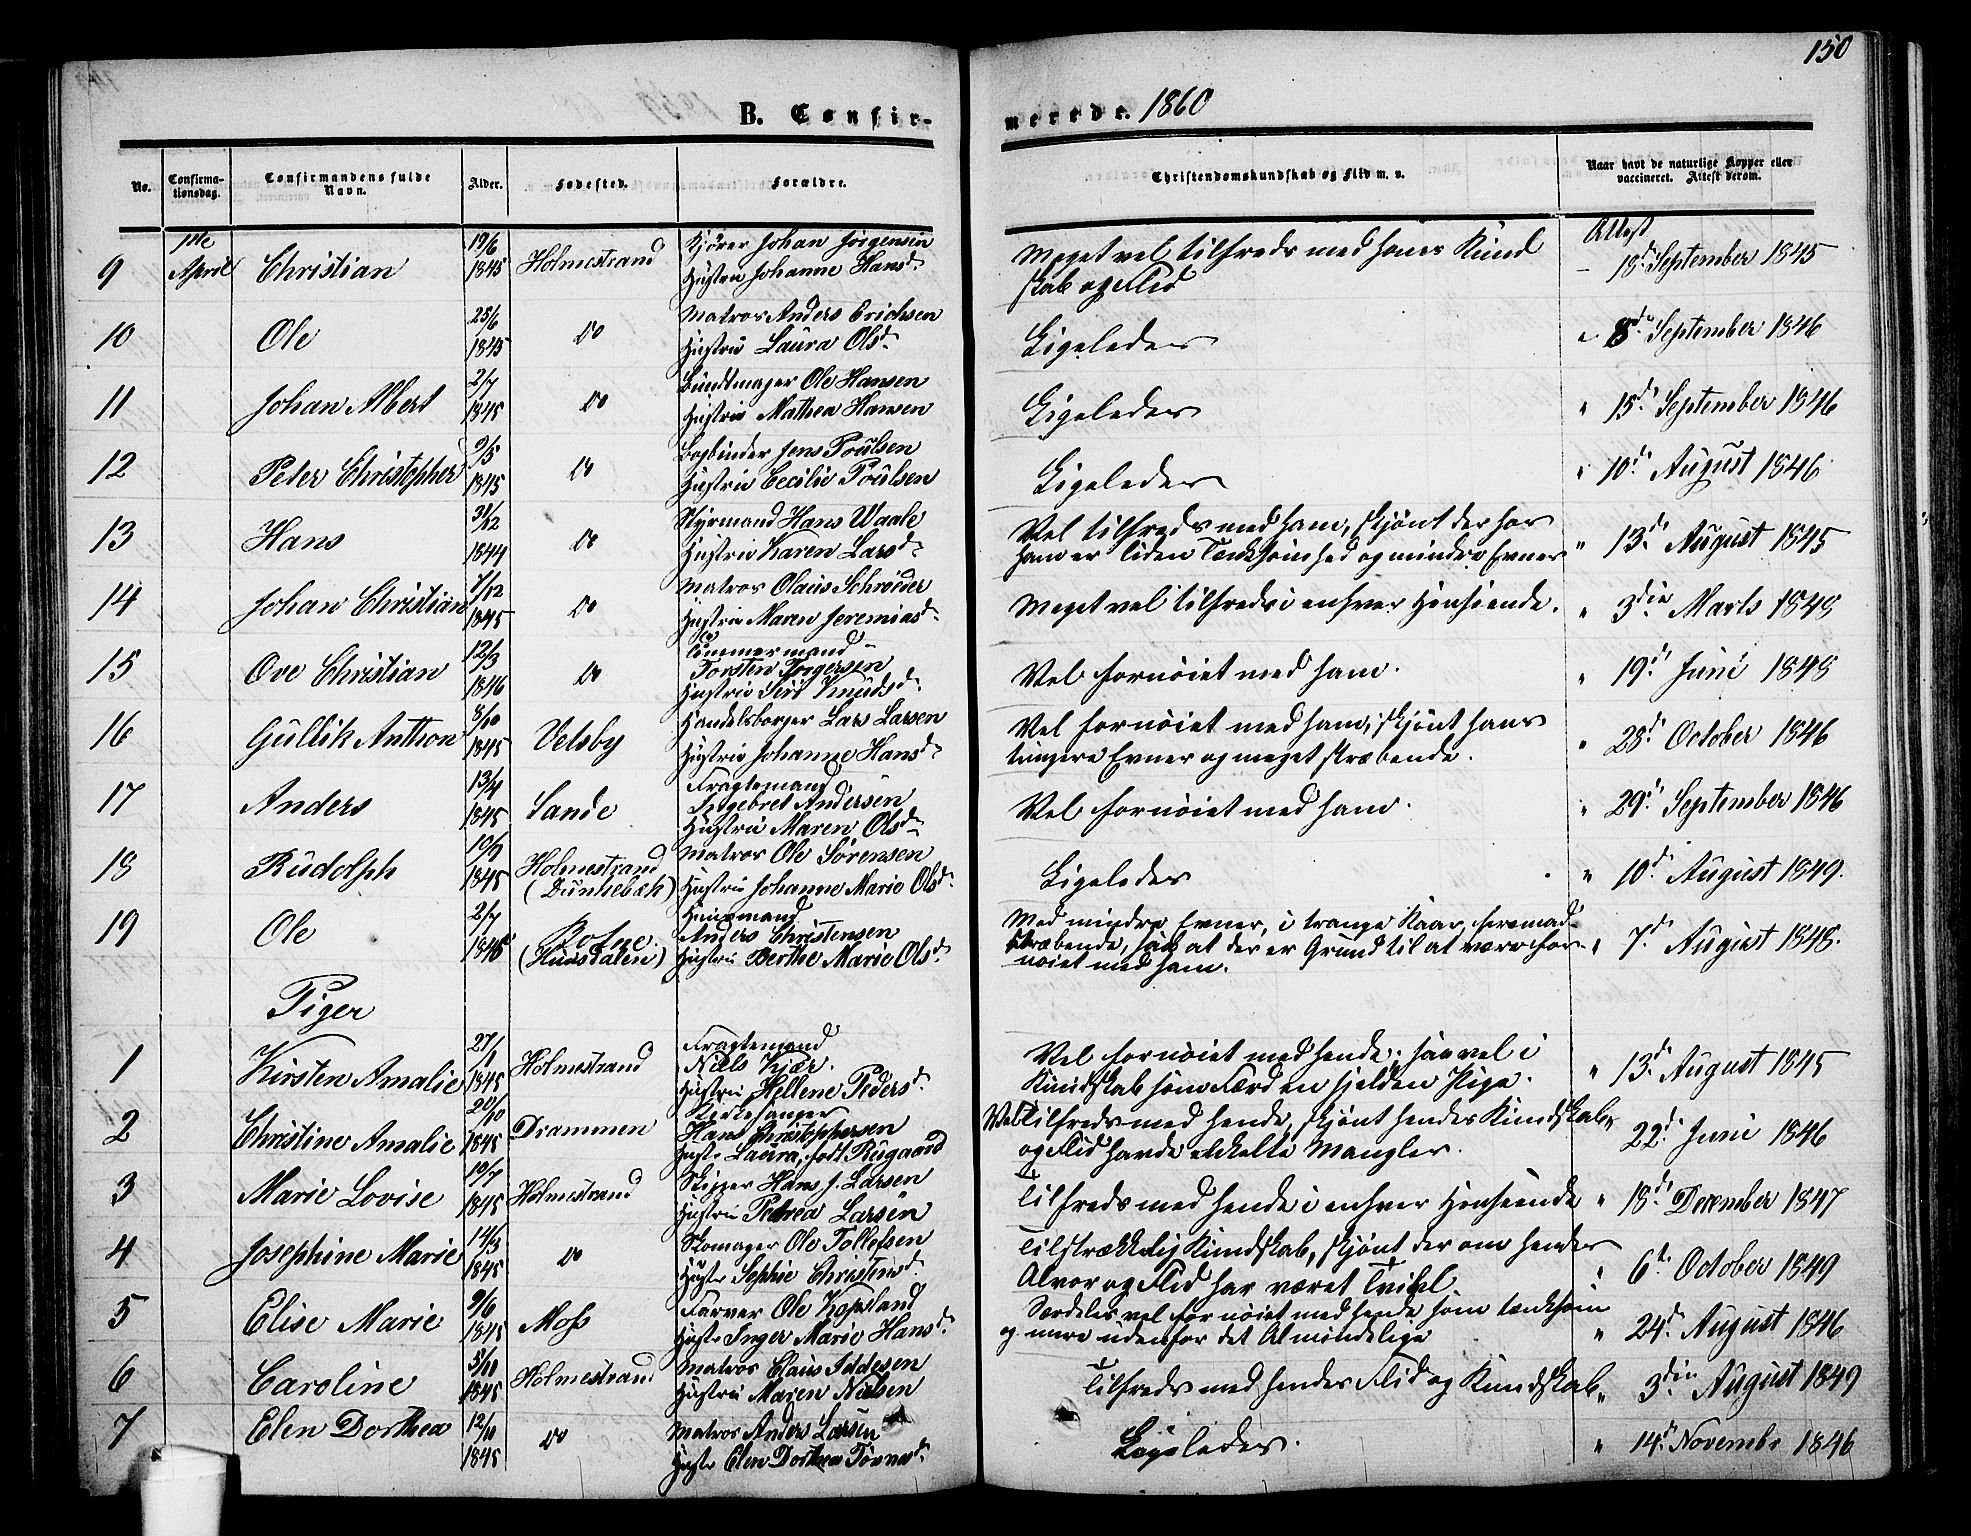 150
B. Confirmerede. 1860
No. Confirmationsdag. Confirmandens fulde Navn. Alder. Fødested. Forældre. Christendomskundskab og Flid m. v. Naar havt de naturlige Kopper eller vaccineret. Attest derom.
1ste Attest
9 April Christian 19/6 1845 Holmestrand Kjører Johan Jørgensen Meget vel tilfreds med hans Kund 18d September 1845
Hustru Johanne Hansd. skab og Flid
10 Ole 25/6 1845 Do Matros Anders Erichsen Ligeledes " 8d September 1846
Hustru Laura Olsd.
11 Johan Albert 2/7 1845 Do Bundtmager Ole Hansen Ligeledes " 15d September 1846
Hustru Mathea Hansen
12 Peter Christopher 9/5 1845 Do Bogbinder Jens Poulsen Ligeledes " 10d August 1846
Hustru Cecilie Poulsen
13 Hans 31/12 1844 Do Styrmand Hans Waale Vel tilfreds med ham, skjønt der hos " 13d August 1845
Hustru Karen Larsd. ham er liden Tænksomhed og mindre Evner
14 Johan Christian 7/12 1845 Do Matros Olaus Schrøder Meget vel tilfreds i enhver Henseende. " 3die Marts 1848
Hustru Maren Jeremiasd.
15 Ove Christian 12/3 1846 Do Tømmermand Vel fornøiet med ham. " 19d Juni 1848
Torsten Torgersen
Hustru Siri Knudsd.
16 Gullik Anthon 8/10 1845 Velsby Handelsborger Lars Larsen Vel fornøiet med ham, skjønt hans " 28d October 1846
Hustru Johanne Hansd. tungere Evner og meget stræbende.
17 Anders 13/4 1845 Sande Fragtemand Vel fornøiet med ham. " 29d September 1846
Ingebret Andersen
Hustru Maren Olsd.
18 Rudolph 10/9 1845 Holmestrand Matros Ole Sørensen Ligeledes " 10d August 1849.
(Dunkebæk) Hustru Johanne Marie Olsd.
19 Ole 2/7 1845 Botne Huusmand Med mindre Evner, i trange Kaar, fremad-
Anders Christensen stræbende, saa at der er Grund til at være for- " 7d August 1848.
Hustru Berthe Marie Olsd. nøiet med ham.
Piger
1 Kirsten Amalie 27/1 1845 Holmestrand Fragtemand Vel fornøiet med hende, saavel i " 13d August 1845
Niels Kjær. Kundskab som Færd en sjelden Pige.
Hustru Hellene Pedersd.
2 Christine Amalie 20/10 1845 Drammen Kirkesanger Vel tilfreds med hende, skjønt hendes Kundskab 22d Juni 1846
Hans Christophersen og Flid havde enkelte Mangler.
Hustr Laura, født Rugaard
3 Marie Lovise 19/7 1845 Holmestrand Skipper Hans J. Larsen Tilfreds med hende i enhver Henseende " 18d December 1847
Hustru Petrea Larsen
4 Josephine Marie 14/3 1845 Do Skomager Ole Tollefsen Tilstrækkelig Kundskab, skjønt der om hendes " 6t October 1849
Hustr Sophie Christensd. Alvor og Flid har været Tvivl.
5 Elise Marie 9/6 1845 Moss Farver Ole Kopsland Særdeles vel fornøiet med hende som tænksom " 24d August 1846
Hustr Inger Marie Hansd. og mere udenfor det Almindelige
6 Caroline 5/10 1845 Holmestrand Matros Claus Iddesen Tilfreds med hendes Flid og Kundskab " 3die August 1849
Hustru Maren Nielsen
7 Elen Dorthea 12/10 1845 Do Matros Anders Larsen Ligeledes. " 14d Novembr 1846
Hustr Elen Dorthea